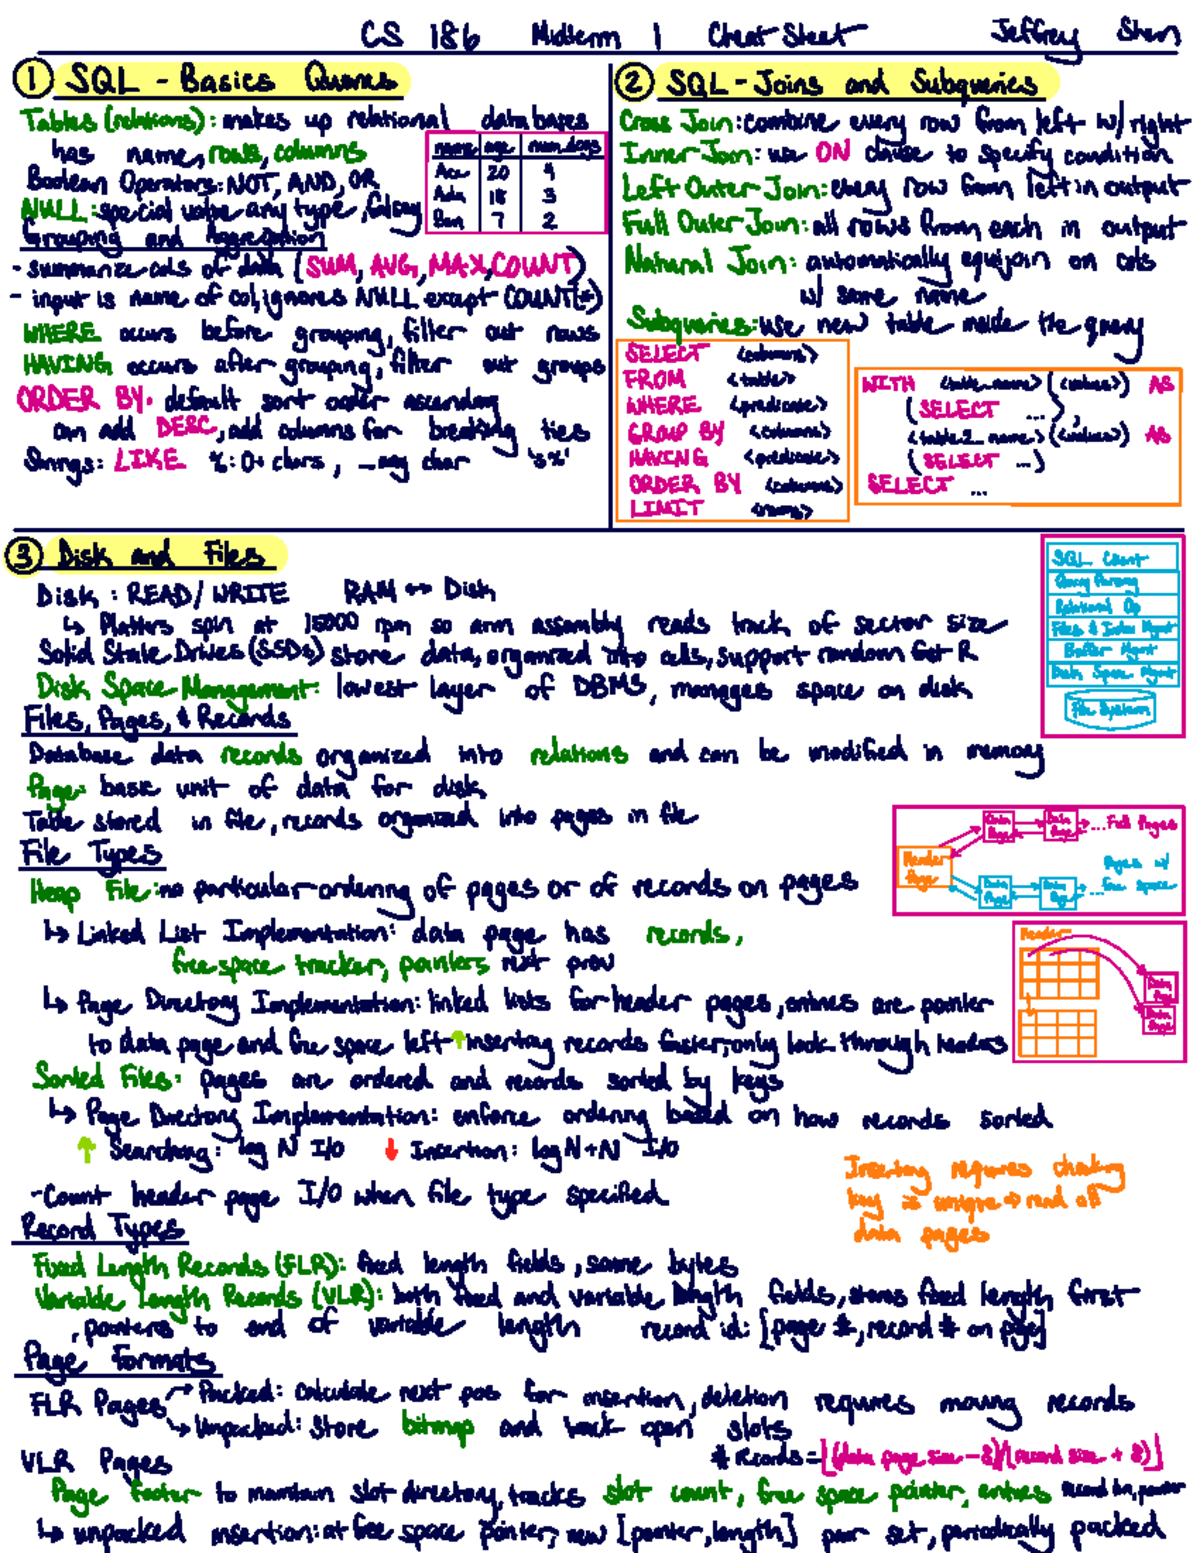 CS 186 Midterm 1 Cheat Sheet Jeffrey Shen
① SQL - Basics Queries
Tables (relations): makes up relational databases
has name, rows, columns
Boolean Operators: NOT, AND, OR
NULL: special value any type, falsey
name age num_dogs
Ace 20 4
Ada 18 3
Ben 7 2
Grouping and Aggregation
- summarize cols of data (SUM, AVG, MAX, COUNT)
- input is name of col, ignores NULL except COUNT(*)
WHERE occurs before grouping, filter out rows
HAVING occurs after grouping, filter out groups
ORDER BY: default sort order ascending
can add DESC, add columns for breaking ties
Strings: LIKE %: 0+ chars, _ any char 's%'
② SQL - Joins and Subqueries
Cross Join: combine every row from left w/ right
Inner Join: use ON clause to specify condition
Left Outer Join: every row from left in output
Full Outer Join: all rows from each in output
Natural Join: automatically equijoin on cols
w/ same name
Subqueries: use new table inside the query
SELECT <columns>
FROM <table>
WHERE <predicate>
GROUP BY <columns>
HAVING <predicate>
ORDER BY <columns>
LIMIT
WITH <table_name> (<values>) AS
(SELECT ... ),
<table2_name> (<values>) AS
(SELECT ...)
SELECT ...
③ Disk and Files
Disk: READ/WRITE RAM ↔ Disk
↳ Platters spin at 15000 rpm so arm assembly reads track of sector size
Solid State Drives (SSDs) store data, organized into cells, support random fast R
Disk Space Management: lowest layer of DBMS, manages space on disk
SQL Client
Query Parsing
Relational Op
Files & Index Mgmt
Buffer Mgmt
Disk Space Mgmt
File System
Files, Pages, & Records
Database data records organized into relations and can be modified in memory
Page: basic unit of data for disk
Table stored in file, records organized into pages in file
File Types
Heap File: no particular ordering of pages or of records on pages
↳ Linked List Implementation: data page has records,
free space tracker, pointers next prev
Header Page
Data Page Data Page ... Full Pages
Data Page Data Page ... Pages w/ free space
↳ Page Directory Implementation: linked lists for header pages, entries are pointer
to data page and free space left ↑ inserting records faster, only look through headers
Header
Data Page
Data Page
Sorted Files: pages are ordered and records sorted by keys
↳ Page Directory Implementation: enforce ordering based on how records sorted
↑ Searching: log N I/O ↓ Insertion: log N + N I/O
- Count header page I/O when file type specified
Inserting requires checking
key is unique → read all
data pages
Record Types
Fixed Length Records (FLR): fixed length fields, same bytes
Variable Length Records (VLR): both fixed and variable length fields, stores fixed length first
, pointers to end of variable length record id: [page #, record # on page]
Page Formats
FLR Pages → Packed: calculate next pos for insertion, deletion requires moving records
↳ Unpacked: Store bitmap and track open slots
VLR Pages # Records = ⌊(data page size - 8)/(record size + 8)⌋
Page footer to maintain slot directory, tracks slot count, free space pointer, entries record len, pointer
↳ unpacked insertion: at free space pointer, new [pointer, length] pair set, periodically packed